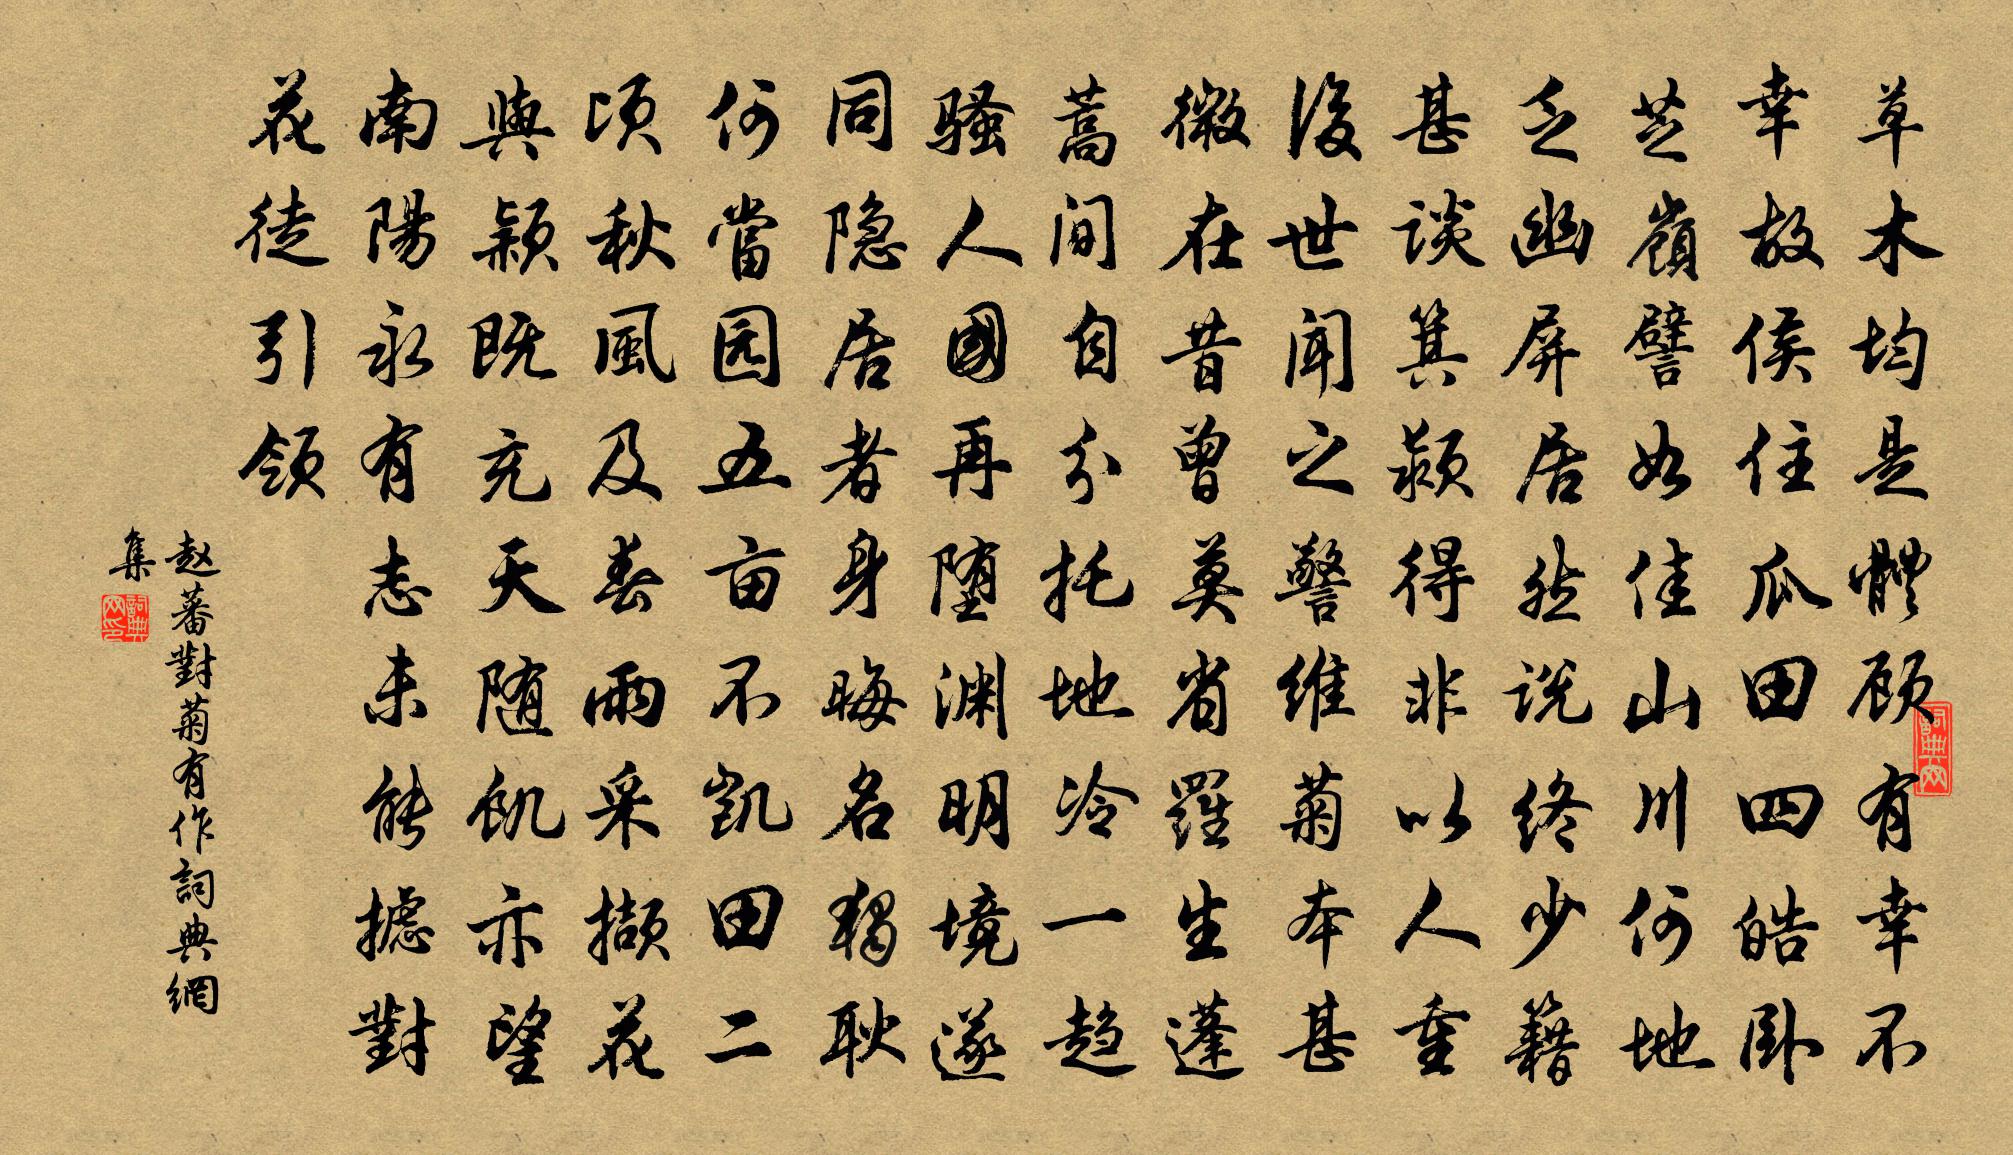 草木均是體顾有幸不
幸故侯住瓜田四皓卧
芝嶺譬如佳山川何地
乏幽屏居然说终少籍
甚谈箕颍得非以人重
後世闻之警维菊本甚
微在昔曾莫省羅生蓬
蒿间自分托地冷一趋
骚人國再堕渊明境遂
同隐居者身晦名独耿
何當园五亩不凯田二
顷秋風及春雨采撷花
與颖既充天随飢亦望
南陽永有志未能摅對
花徒引领
赵蕃對菊有作詞典網
集
詞典网
詞典网印